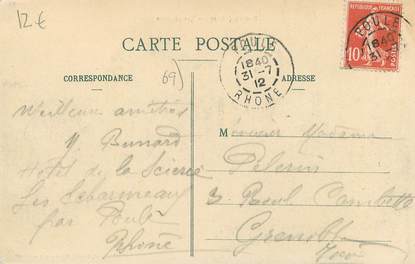 12 €
CARTE POSTALE
CORRESPONDANCE
69)
ADRESSE
POULE
1840
31 -7
12
RHONE
REPUBLIQUE FRANÇAISE
10
POSTES
POULE
1840
31
Meilleures amitiés
Hotel de la Scierie
Les Echarmeaux
par Poule
Rhône
M
Monsieur Madame
Pelerin
3 Raoul Gambetta
Grenoble